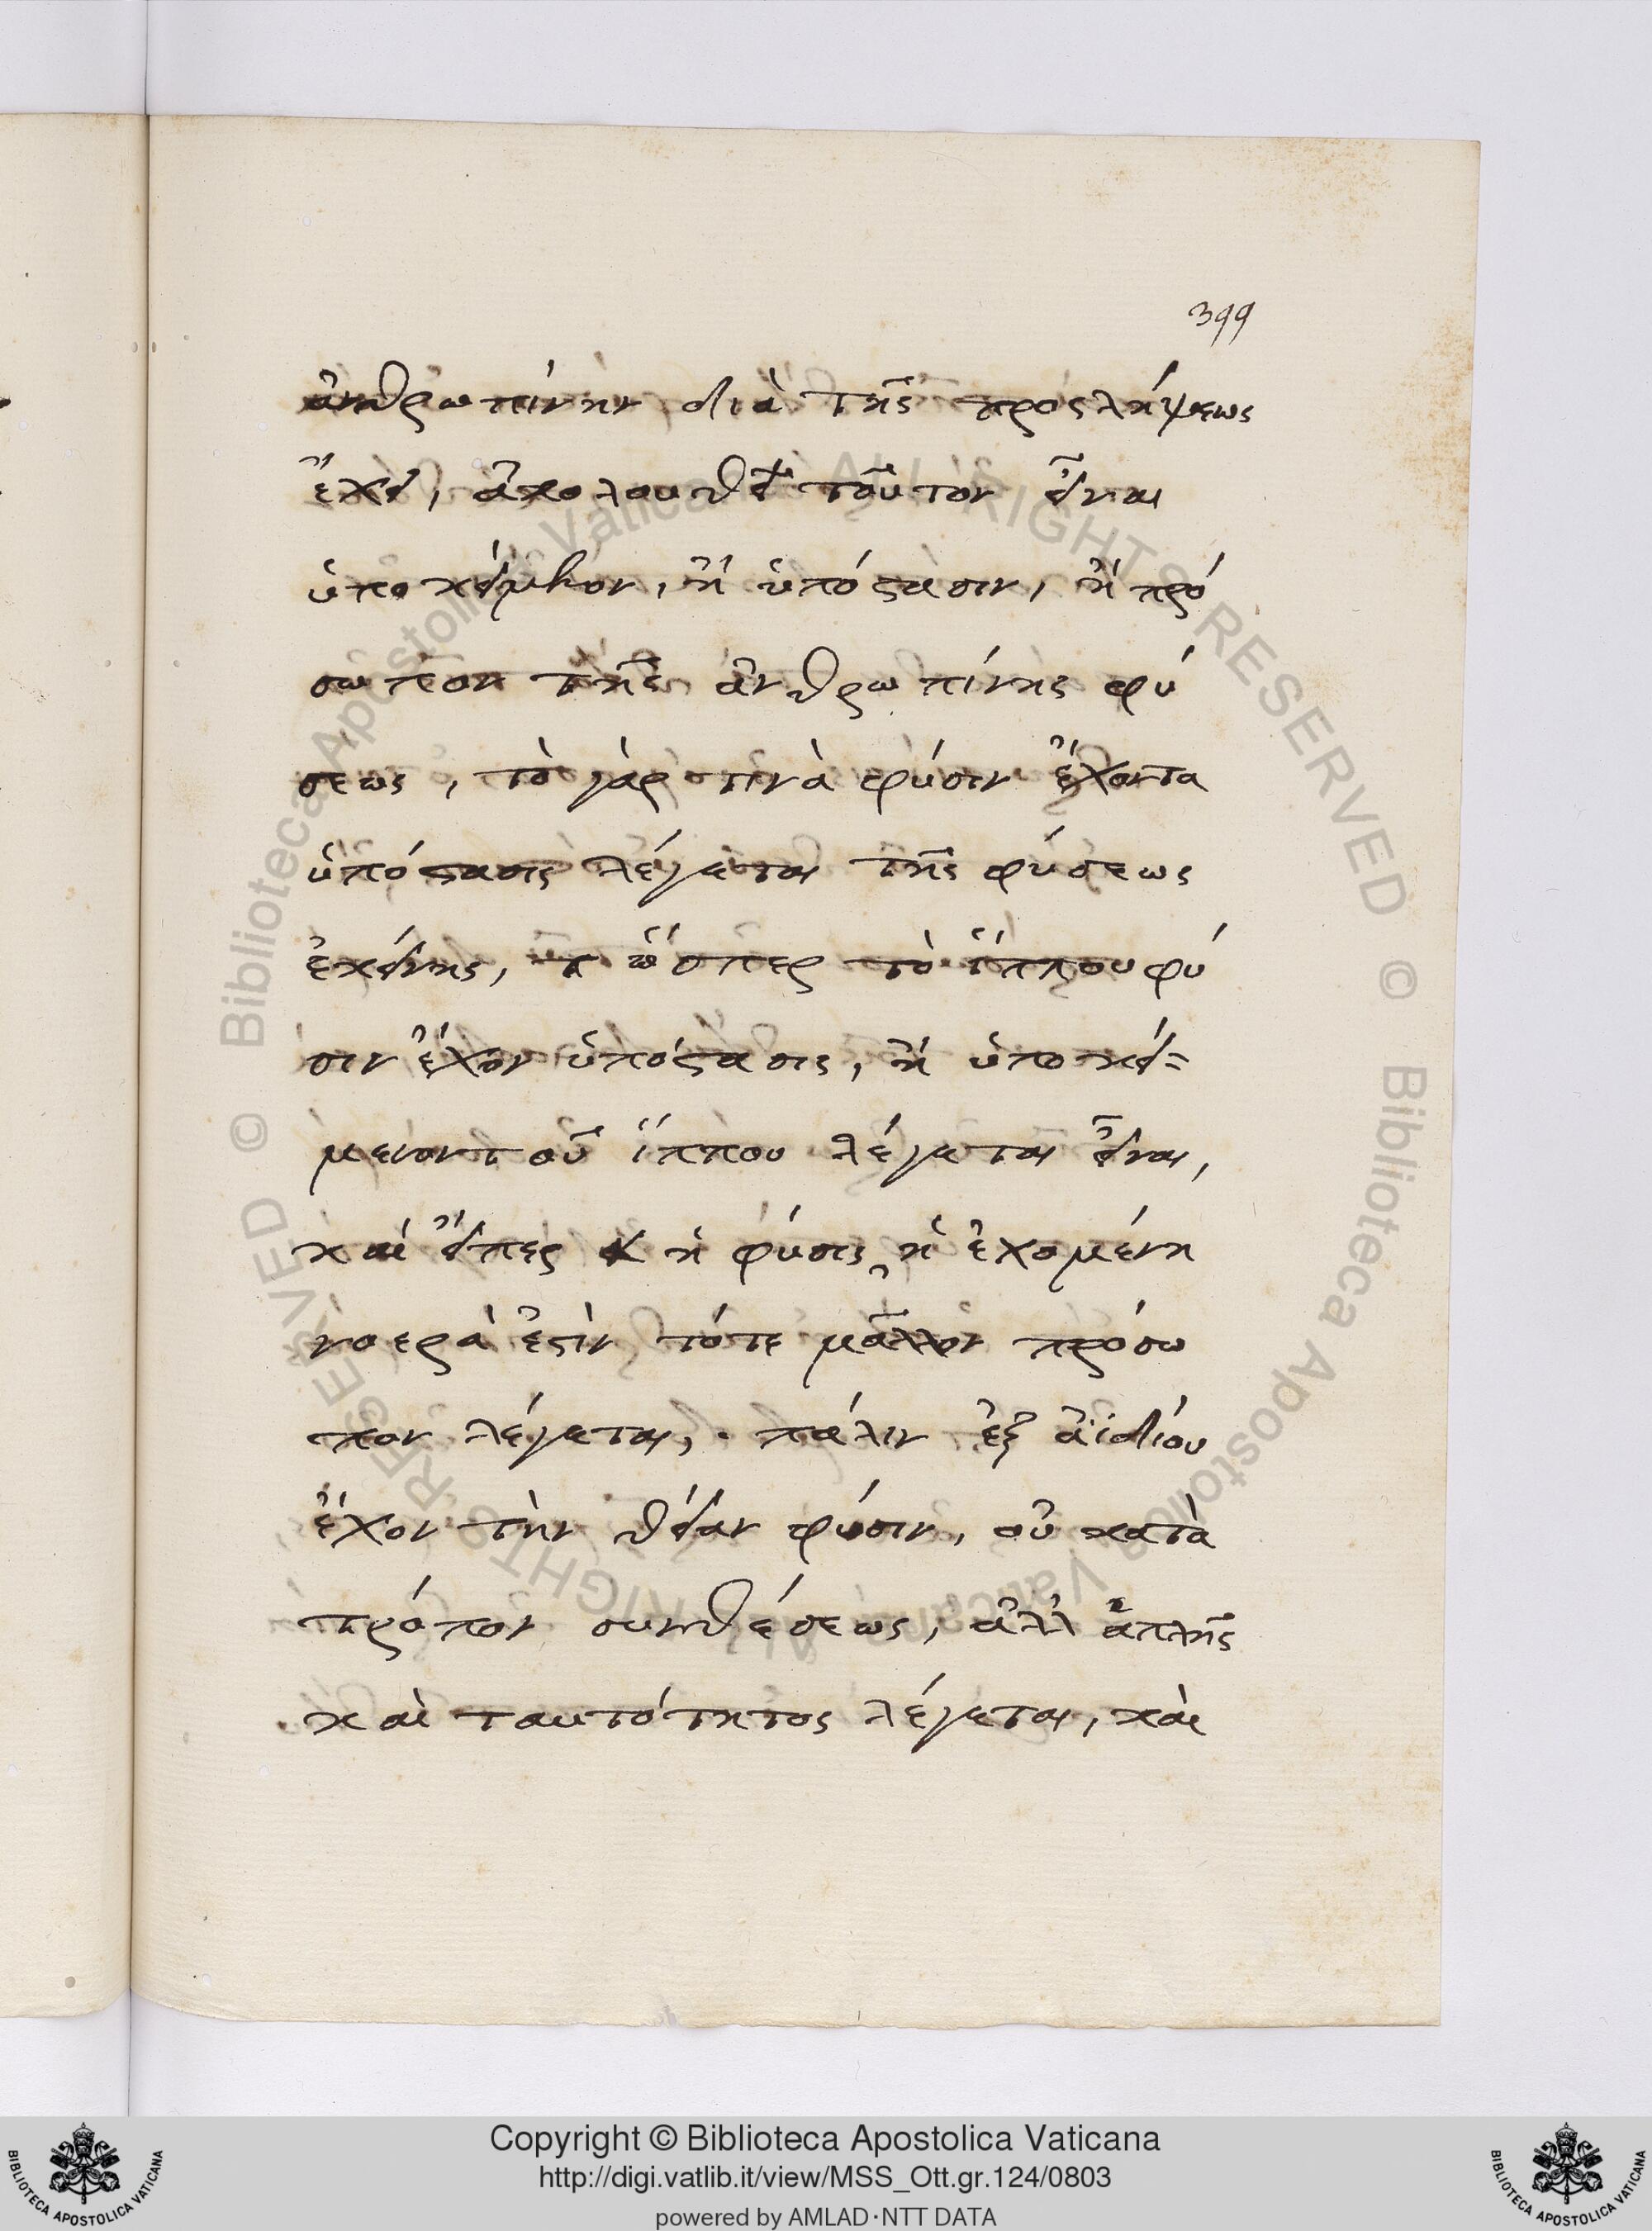 399
ἀνθρωπίνην διὰ τῆς προςλήψεως
ἔχει, ἀκολουθεῖ τοῦτον εἶναι
ὑποκείμενον, ἢ ὑπόστασιν, ἢ πρό
σωπον τῆς ἀνθρωπίνης φύ
σεως, τὸ γὰρ τινὰ φύσιν ἔχοντα
ὑπόστασις λέγεται τῆς φύσεως
ἐκείνης, ὥσπερ τὸ ἵππου φύ
σιν ἔχον ὑπόστασις, ἢ ὑποκεί=
μενον τοῦ ἵππου λέγεται εἶναι,
καὶ εἴπερ ἡ φύσις ἡ ἐχομένη
νοερὰ ἐστὶν τότε μᾶλλον πρόσω
πον λέγεται, . πάλιν ἐξ ἀϊδίου
ἔχον τὴν θείαν φύσιν, οὐ κατὰ
τρόπον συνθέσεως, ἀλλ ἁπλῆς
καὶ ταυτότητος λέγεται, καὶ
Copyright © Biblioteca Apostolica Vaticana
http://digi.vatlib.it/view/MSS_Ott.gr.124/0803
powered by AMLAD·NTT DATA